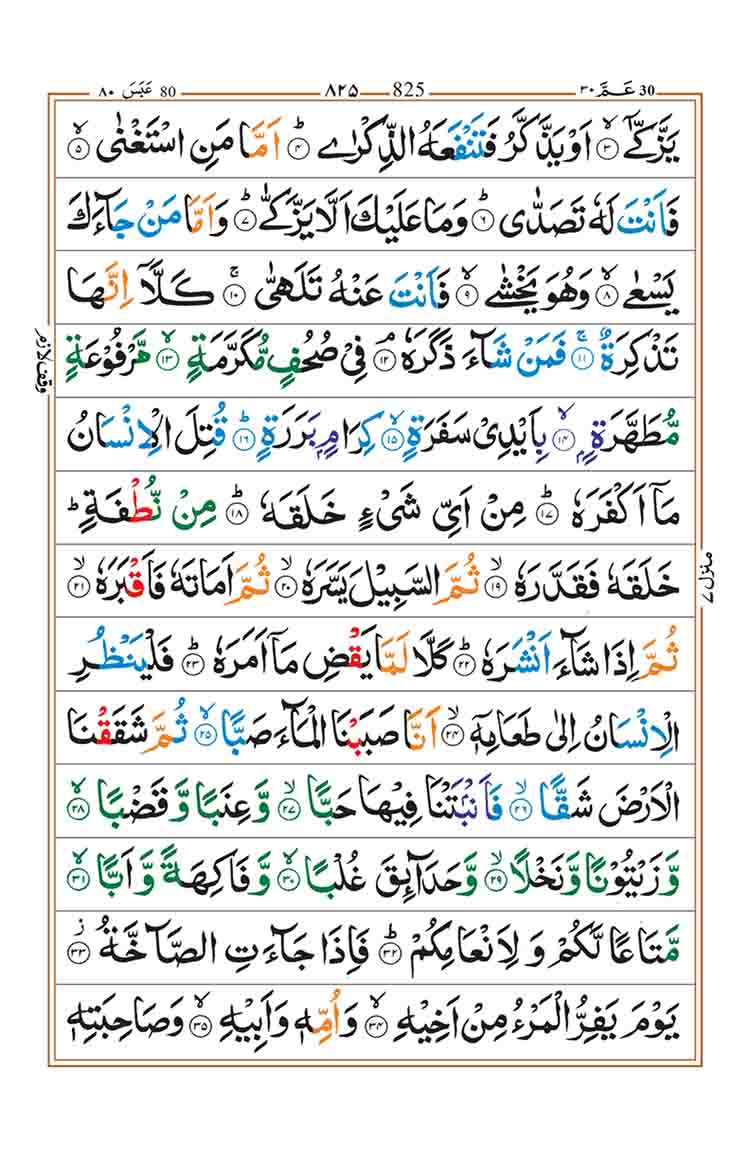 عَمَّ ٣٠ 30 825 ٨٢٥ 80 عَبَسَ ٨٠
يَزَّكّٰىۤ ۙ‏ ٣ اَوْ يَذَّكَّرُ فَتَنْفَعَهُ الذِّكْرٰىؕ‏ ٤ اَمَّا مَنِ اسْتَغْنٰىۙ‏ ٥
فَاَنْتَ لَهٗ تَصَدّٰىؕ‏ ٦ وَمَا عَلَيْكَ اَلَّا يَزَّكّٰىؕ‏ ٧ وَاَمَّا مَنْ جَآءَكَ
يَسْعٰىۙ‏ ٨ وَهُوَ يَخْشٰىۙ‏ ٩ فَاَنْتَ عَنْهُ تَلَهّٰىۚ‏ ١٠ كَلَّاۤ اِنَّهَا
تَذْكِرَةٌۚ‏ ١١ فَمَنْ شَآءَ ذَكَرَهٗۘ‏ ١٢ فِىْ صُحُفٍ مُّكَرَّمَةٍۙ‏ ١٣ مَّرْفُوْعَةٍ
وقف لازم
مُّطَهَّرَةٍۢۙ‏ ١٤ بِاَيْدِىْ سَفَرَةٍۙ‏ ١٥ كِرَامٍۢ بَرَرَةٍؕ‏ ١٦ قُتِلَ الْاِنْسَانُ
مَاۤ اَكْفَرَهٗؕ‏ ١٧ مِنْ اَىِّ شَىْءٍ خَلَقَهٗؕ‏ ١٨ مِنْ نُّطْفَةٍؕ
خَلَقَهٗ فَقَدَّرَهٗۙ‏ ١٩ ثُمَّ السَّبِيْلَ يَسَّرَهٗۙ‏ ٢٠ ثُمَّ اَمَاتَهٗ فَاَقْبَرَهٗۙ‏ ٢١
منزل ٧
ثُمَّ اِذَا شَآءَ اَنْشَرَهٗؕ‏ ٢٢ كَلَّا لَمَّا يَقْضِ مَاۤ اَمَرَهٗؕ‏ ٢٣ فَلْيَنْظُرِ
الْاِنْسَانُ اِلٰى طَعَامِهٖۤۙ‏ ٢٤ اَنَّا صَبَبْنَا الْمَآءَ صَبًّاۙ‏ ٢٥ ثُمَّ شَقَقْنَا
الْاَرْضَ شَقًّاۙ‏ ٢٦ فَاَنْۢبَتْنَا فِيْهَا حَبًّاۙ‏ ٢٧ وَّعِنَبًا وَّقَضْبًاۙ‏ ٢٨
وَّزَيْتُوْنًا وَّنَخْلًاۙ‏ ٢٩ وَّحَدَآئِقَ غُلْبًاۙ‏ ٣٠ وَّفَاكِهَةً وَّاَبًّاۙ‏ ٣١
مَّتَاعًا لَّكُمْ وَلِاَنْعَامِكُمْؕ‏ ٣٢ فَاِذَا جَآءَتِ الصَّآخَّةُز‏ ٣٣
يَوْمَ يَفِرُّ الْمَرْءُ مِنْ اَخِيْهِۙ‏ ٣٤ وَاُمِّهٖ وَاَبِيْهِۙ‏ ٣٥ وَصَاحِبَتِهٖ